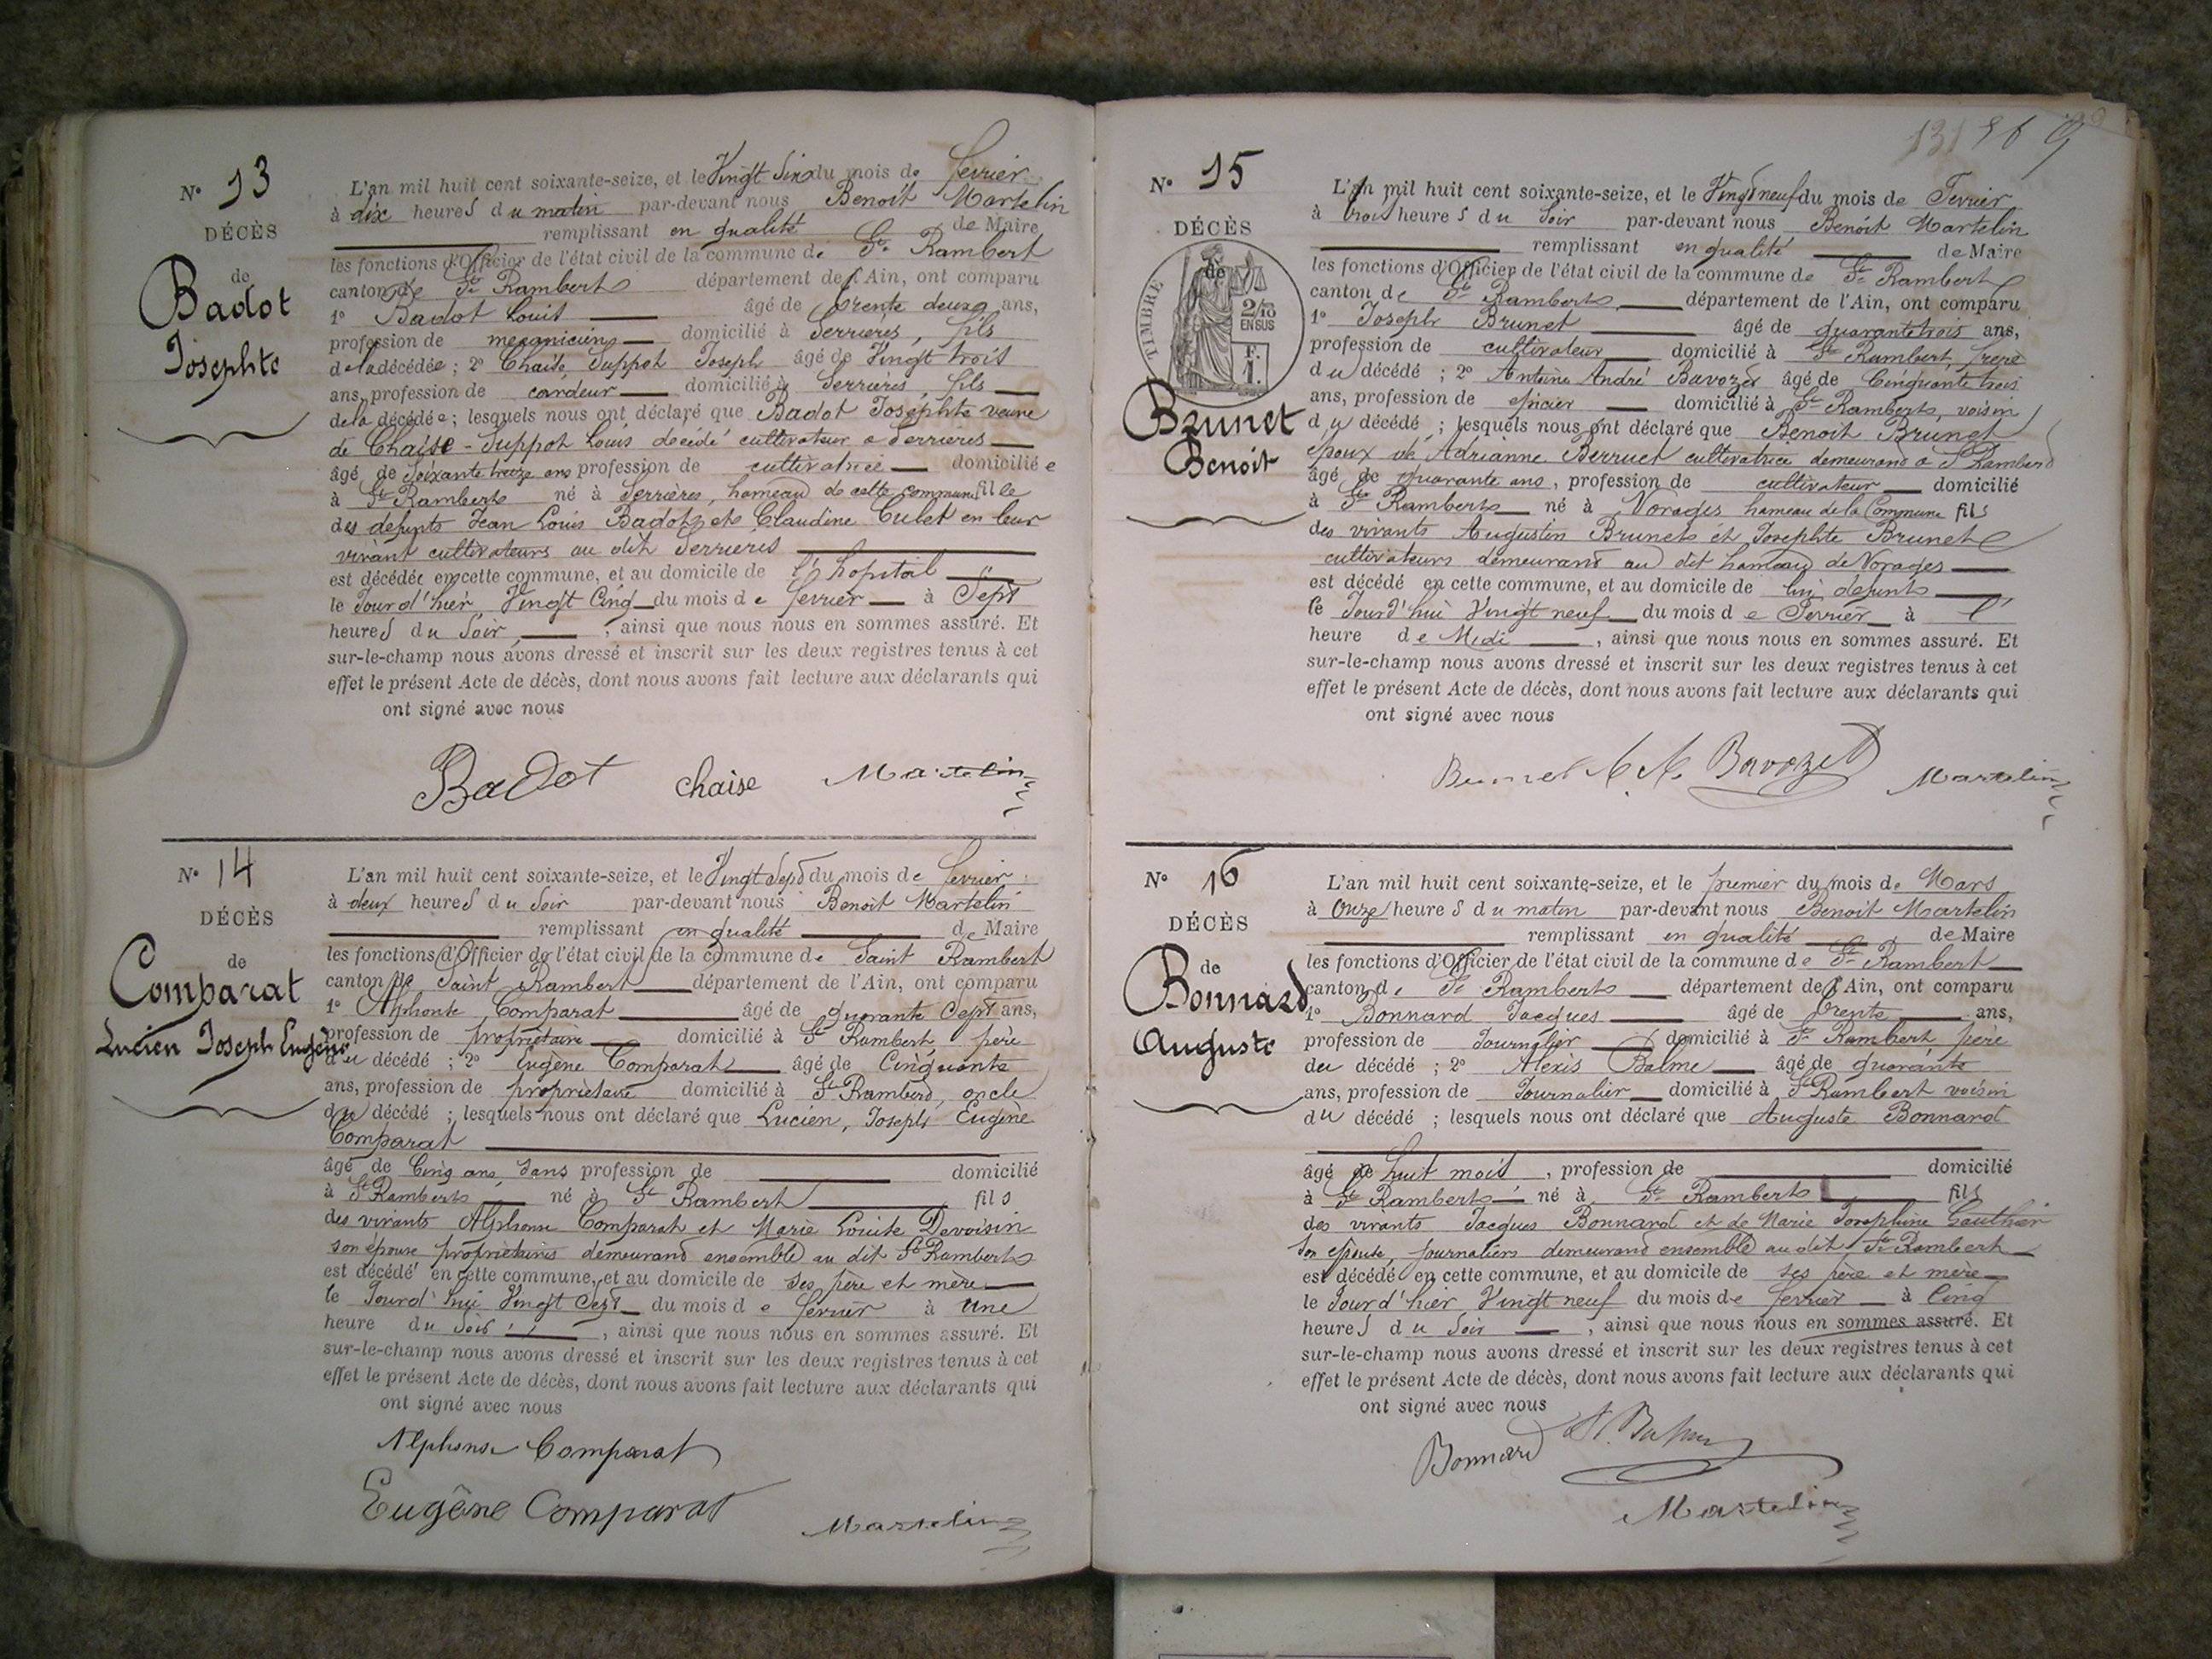 N° 13
DÉCÈS
de
Badot
Josephte
L'an mil huit cent soixante-seize, et le Vingt Six du mois de fevrier
à dix heures du matin par-devant nous Benoit Martelin
remplissant en qualité de Maire
les fonctions d'Officier de l'état civil de la commune de St Rambert
canton de St Rambert département de l'Ain, ont comparu
1° Badot Louis âgé de trente deux ans,
profession de mecanicien domicilié à Serrieres, fils
de la décédée ; 2° Chaise Suppot Joseph âgé de Vingt trois
ans, profession de cardeur domicilié à Serrières, fils
de la décédée ; lesquels nous ont déclaré que Badot Josephte veuve
de Chaise-Suppot Louis décédé cultivateur a Serrieres
âgé de Soixante treize ans profession de cultivatrice domiciliée
à St Rambert né à Serrières, hameau de cette commune fille
des defunts Jean Louis Badot et Claudine Culet en leur
vivant cultivateurs au dit Serrieres
est décédée en cette commune, et au domicile de l'hopital
le Jour d'hier Vingt Cinq du mois de fevrier à Sept
heures du Soir , ainsi que nous nous en sommes assuré. Et
sur-le-champ nous avons dressé et inscrit sur les deux registres tenus à cet
effet le présent Acte de décès, dont nous avons fait lecture aux déclarants qui
ont signé avec nous
Badot chaise Martelin
N° 14
DÉCÈS
de
Comparat
Lucien Joseph Eugène
L'an mil huit cent soixante-seize, et le Vingt Sept du mois de fevrier
à deux heures du Soir par-devant nous Benoit Martelin
remplissant en qualité de Maire
les fonctions d'Officier de l'état civil de la commune de Saint Rambert
canton de Saint Rambert département de l'Ain, ont comparu
1° Alphonse Comparat âgé de quarante Sept ans,
profession de propriétaire domicilié à St Rambert, père
du décédé ; 2° Eugène Comparat âgé de Cinquante
ans, profession de propriétaire domicilié à St Rambert, oncle
du décédé ; lesquels nous ont déclaré que Lucien, Joseph Eugène
Comparat
âgé de Cinq ans, Sans profession de domicilié
à St Rambert né à St Rambert fils
des vivants Alphonse Comparat et Marie Louise Devoisin
son épouse propriétaires demeurant ensemble au dit St Rambert
est décédé en cette commune, et au domicile de ses père et mère
le Jour d'hui Vingt Sept du mois de fevrier à une
heure du Soir , ainsi que nous nous en sommes assuré. Et
sur-le-champ nous avons dressé et inscrit sur les deux registres tenus à cet
effet le présent Acte de décès, dont nous avons fait lecture aux déclarants qui
ont signé avec nous
Alphonse Comparat
Eugène Comparat
Martelin
131 9
N° 15
DÉCÈS
de
TIMBRE
2/10
EN SUS
F.
1.
Brunet
Benoit
L'an mil huit cent soixante-seize, et le Vingt neuf du mois de Fevrier
à trois heures du Soir par-devant nous Benoit Martelin
remplissant en qualité de Maire
les fonctions d'Officier de l'état civil de la commune de St Rambert
canton de St Rambert département de l'Ain, ont comparu
1° Joseph Brunet âgé de quarante trois ans,
profession de cultivateur domicilié à St Rambert, frere
du décédé ; 2° Antoine André Bavozet âgé de Cinquante trois
ans, profession de épicier domicilié à St Rambert, voisin
du décédé ; lesquels nous ont déclaré que Benoit Brunet
époux de Adrianne Berruet cultivatrice demeurant a St Rambert
âgé de quarante ans, profession de cultivateur domicilié
à St Rambert né à Vorages hameau de la Commune fils
des vivants Augustin Brunet et Josephte Brunet
cultivateurs demeurant au dit hameau de Vorages
est décédé en cette commune, et au domicile de lui defunt
le Jourd'hui Vingt neuf du mois de Fevrier à l'
heure de Midi , ainsi que nous nous en sommes assuré. Et
sur-le-champ nous avons dressé et inscrit sur les deux registres tenus à cet
effet le présent Acte de décès, dont nous avons fait lecture aux déclarants qui
ont signé avec nous
Brunet A. A. Bavozet Martelin
N° 16
DÉCÈS
de
Bonnard
Auguste
L'an mil huit cent soixante-seize, et le premier du mois de Mars
à Onze heures du matin par-devant nous Benoit Martelin
remplissant en qualité de Maire
les fonctions d'Officier de l'état civil de la commune de St Rambert
canton de St Rambert département de l'Ain, ont comparu
1° Bonnard Jacques âgé de trente ans,
profession de Journalier domicilié à St Rambert père
du décédé ; 2° Alexis Balme âgé de quarante
ans, profession de Journalier domicilié à St Rambert voisin
du décédé ; lesquels nous ont déclaré que Auguste Bonnard
âgé de huit mois , profession de domicilié
à St Rambert né à St Rambert fils
des vivants Jacques Bonnard et de Marie Josephine Gauthier
son épouse, journaliers demeurant ensemble au dit St Rambert
est décédé en cette commune, et au domicile de ses père et mère
le Jour d'hier Vingt neuf du mois de fevrier à Cinq
heures du Soir , ainsi que nous nous en sommes assuré. Et
sur-le-champ nous avons dressé et inscrit sur les deux registres tenus à cet
effet le présent Acte de décès, dont nous avons fait lecture aux déclarants qui
ont signé avec nous
Bonnard
Martelin